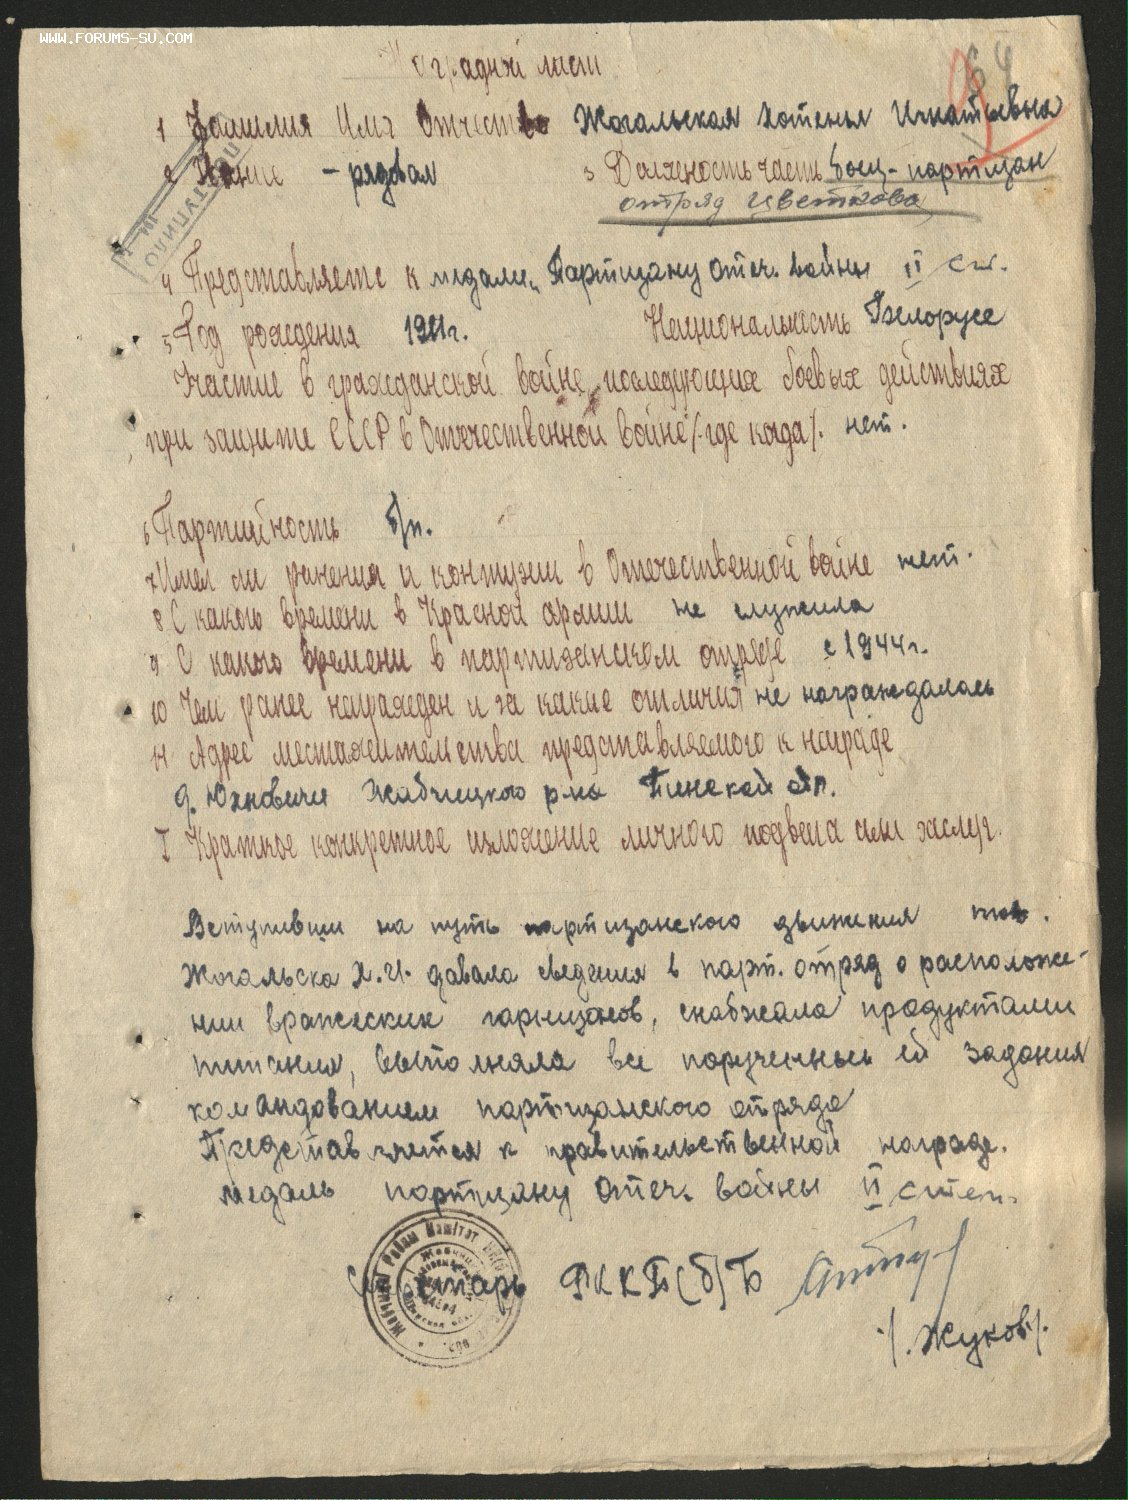 WWW.FORUMS-SU.COM
Наградной лист
64
1 Фамилия Имя Отчество Жогальская Хотенья Игнатьевна
2 Звание – рядовая 3 Должность часть боец-партизан
отряд Цветкова
ПОСТУПИЛО
4 Представляете к медали „Партизану Отеч. войны II ст.
5 Год рождения 1921г. Национальность Белорусс
Участие в гражданской войне, последующих боевых действиях
при защите СССР в Отечественной войне /где когда/. нет.
6 Партийность б/п.
7 Имел ли ранения и контузии в Отечественной войне нет.
8 С какого времени в Красной армии не служила
9 С какого времени в партизанском отряде с 1944г.
10 Чем ранее награжден и за какие отличия не награждалась
11 Адрес местожительства представляемого к награде
д. Юхновичи Жабчицкого р-на Пинской обл.
I Краткое конкретное изложение личного подвига или заслуг.
Вступивши на путь партизанского движения тов.
Жогальска Х.И. давала сведения в парт. отряд о расположе-
нии вражеских гарнизонов, снабжала продуктами
питания, выполняла все порученные ей задания
командованием партизанского отряда
Представляется к правительственной награде.
медаль партизану Отеч. войны II степ.
Секретарь РККП(б)Б
/Жуков/.